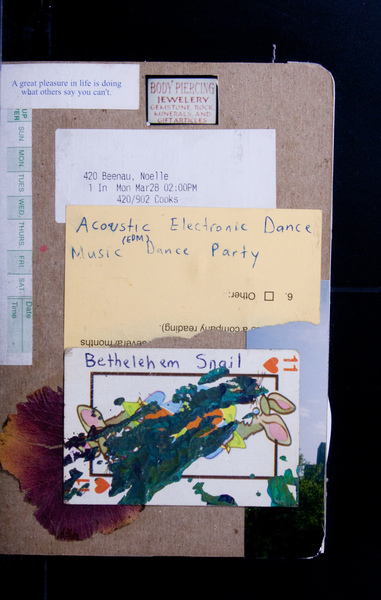 A great pleasure in life is doing
what others say you can't.
BODY PIERCING
JEWELERY
GEMSTONE ROCK,
MINERALS AND
GIFT ARTICLES
SUN. MON. TUES. WED. THURS. FRI. SAT.
Date
Time
420 Beenau, Noelle
1 In Mon Mar28 02:00PM
420/902 Cooks
Acoustic Electronic Dance
(EDM)
Music Dance Party
6. Other:
a company reading).
several months
Bethelehem Snail
11
11